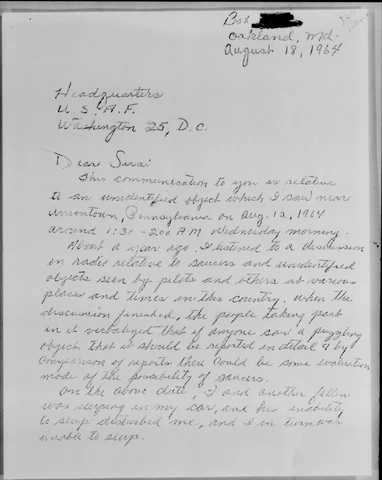 Box
Oakland, Md.
August 18, 1964
Headquarters
U. S. A. F.
Washington 25, D.C.
Dear Sirs:
This communication to you is relative
to an unidentified object which I saw near
Uniontown, Pennsylvania on Aug. 12, 1964
around 1:30 - 2:00 A M Wednesday morning.
About a year ago I listened to a discussion
on radio relative to saucers and unidentified
objects seen by pilots and others at various
places and times in this country. When the
discussion finished, the people taking part
in it verbalized that if anyone saw a puzzling
object that it should be reported in detail & by
comparison of reports there could be some evaluation
made of the possibility of saucers.
On the above date, I and another fellow
was sleeping in my car, and his inability
to sleep disturbed me, and I in turn was
unable to sleep.